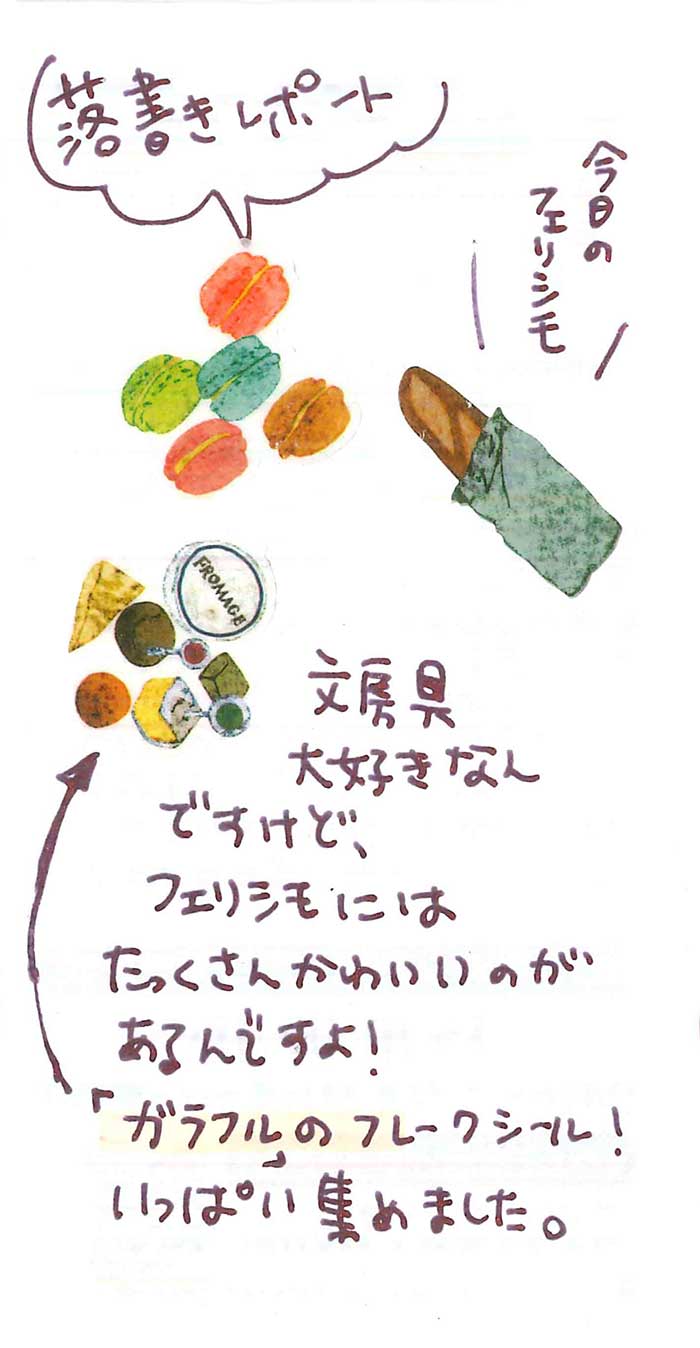 落書きレポート
今日の
フェリシモ
FROMAGE
文房具
大好きなん
ですけど、
フェリシモには
たっくさんかわいいのが
あるんですよ!
「ガラフル」のフレークシール!
いっぱい集めました。